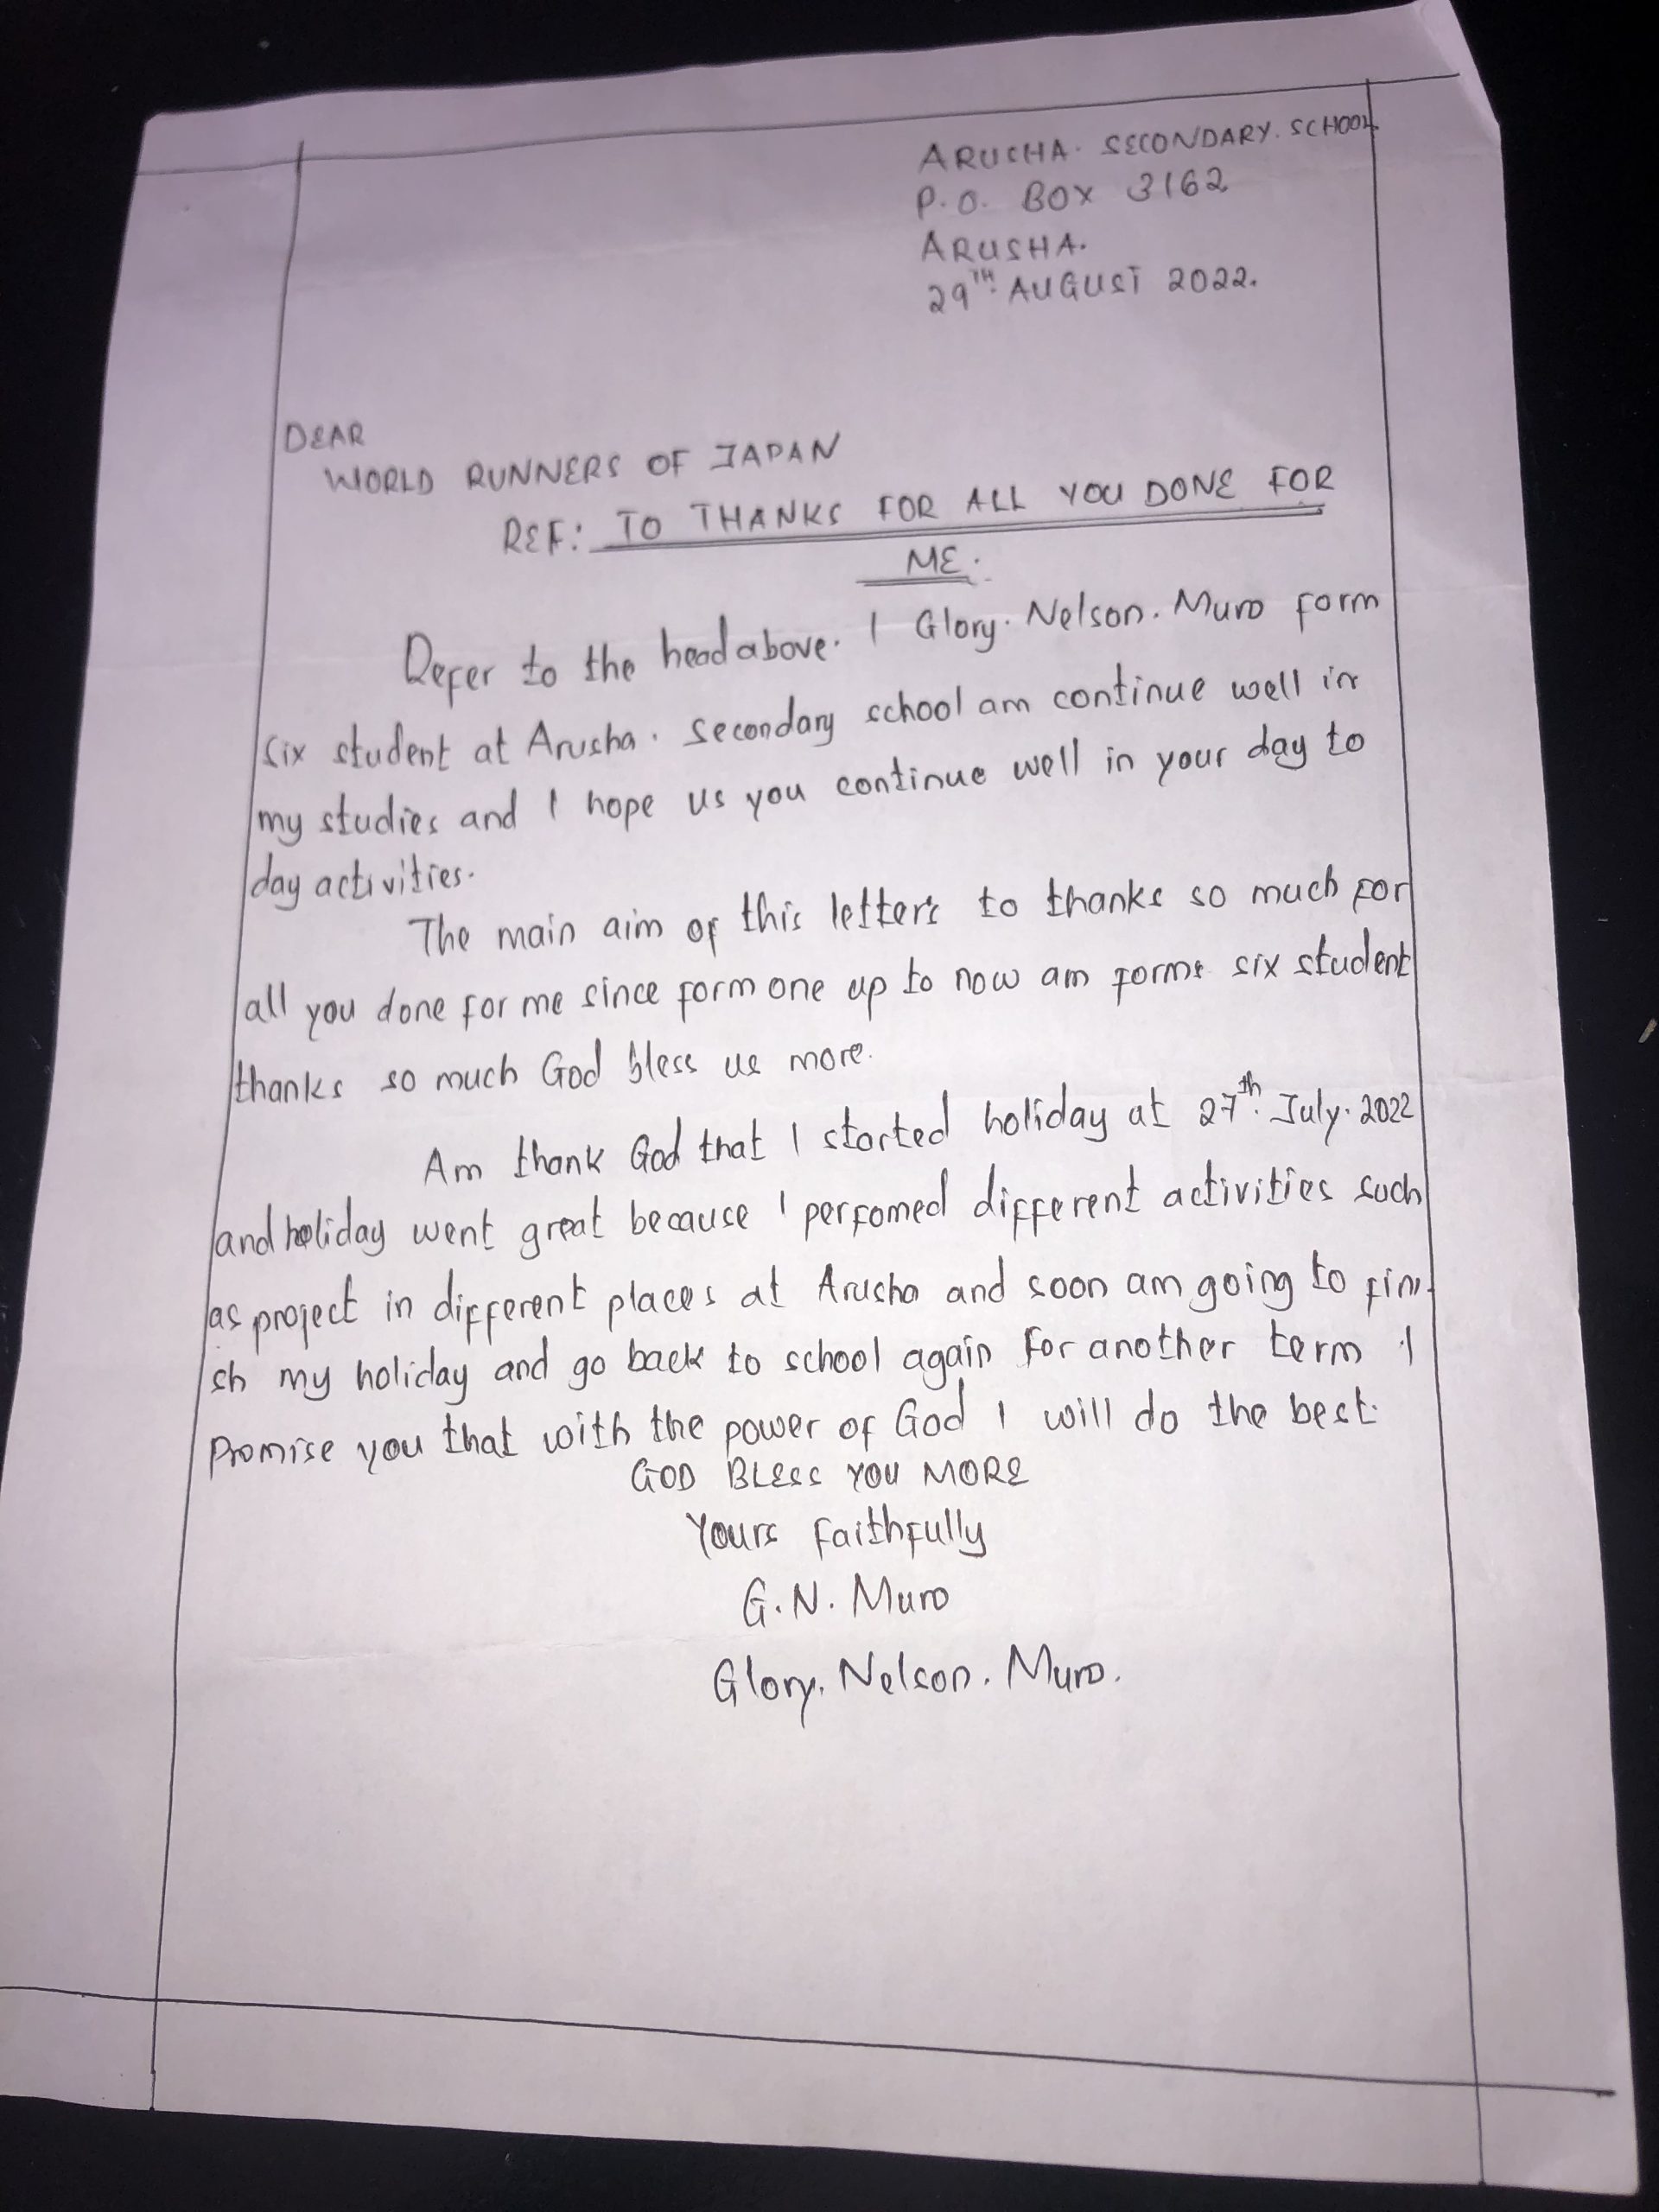 ARUSHA. SECONDARY. SCHOOL.
P.O. BOX 3162
ARUSHA.
29TH. AUGUST 2022.
DEAR
WORLD RUNNERS OF JAPAN
REF: TO THANKS FOR ALL YOU DONE FOR
ME.
Refer to the head above. I Glory. Nelson. Muro form
six student at Arusha. Secondary school am continue well in
my studies and I hope us you continue well in your day to
day activities.
The main aim of this letter's to thanks so much for
all you done for me since form one up to now am forms six student
thanks so much God bless us more.
Am thank God that I started holiday at 27th. July. 2022
and holiday went great because I perfomed different activities such
as project in different places at Arusha and soon am going to fini-
sh my holiday and go back to school again for another term I
promise you that with the power of God I will do the best.
GOD BLESS YOU MORE
Yours faithfully
G.N. Muro
Glory. Nelson. Muro.